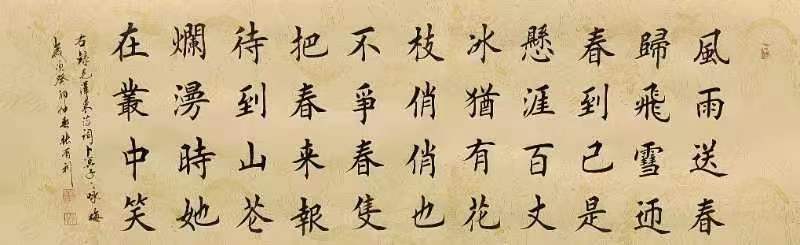 風雨送春
歸飛雪迎
春到已是
懸涯百丈
冰猶有花
枝俏俏也
不爭春隻
把春来報
待到山花
爛漫時她
在叢中笑
右録毛澤東詩詞卜算子咏梅
歲次癸卯仲夏張有利